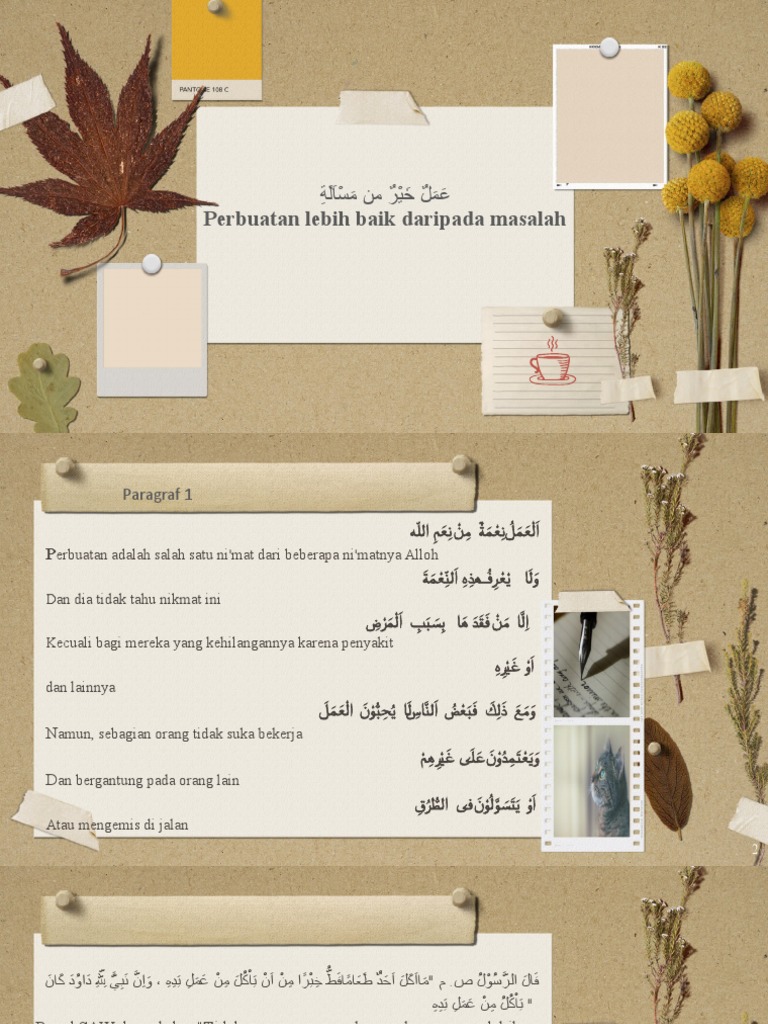 PANTONE 108 C
عَمَلٌ خَيْرٌ من مَسْأَلَةِ
Perbuatan lebih baik daripada masalah
Paragraf 1
اَلْعَمَلُ نِعْمَةٌ مِنْ نِعَمِ اللّه
Perbuatan adalah salah satu ni'mat dari beberapa ni'matnya Alloh
وَلَا يُعْرِفُ هذِهِ اَلنِّعْمَةَ
Dan dia tidak tahu nikmat ini
اِلَّا مَنْ فَقَدَ هَا بِسَبَبِ اَلْمَرْضِ
Kecuali bagi mereka yang kehilangannya karena penyakit
اَوْ غَيْرِهِ
dan lainnya
وَمَعَ ذَلِكَ فَبَعْضُ اَلنَّاسِ لَا يُحِبُّوْنَ الْعَمَلَ
Namun, sebagian orang tidak suka bekerja
وَيَعْتَمِدُوْنَ عَلَى غَيْرِهِمْ
Dan bergantung pada orang lain
اَوْ يَتَسَوَّلُوْنَ فى الطُّرُقِ
Atau mengemis di jalan
2
قَالَ الرَّسُوْلُ ص. م "مَااَكَلَ اَحَدٌ طَعَامًاقَطُّ خِيْرًا مِنْ اَنْ يَأْكُلَ مِنْ عَمَلِ يَدِهِ ، وَاِنَّ نَبِيَّ لِلّهِ دَاوُدَ كَانَ
يَأْكُلُ مِنْ عَمَلِ يَدِهِ "